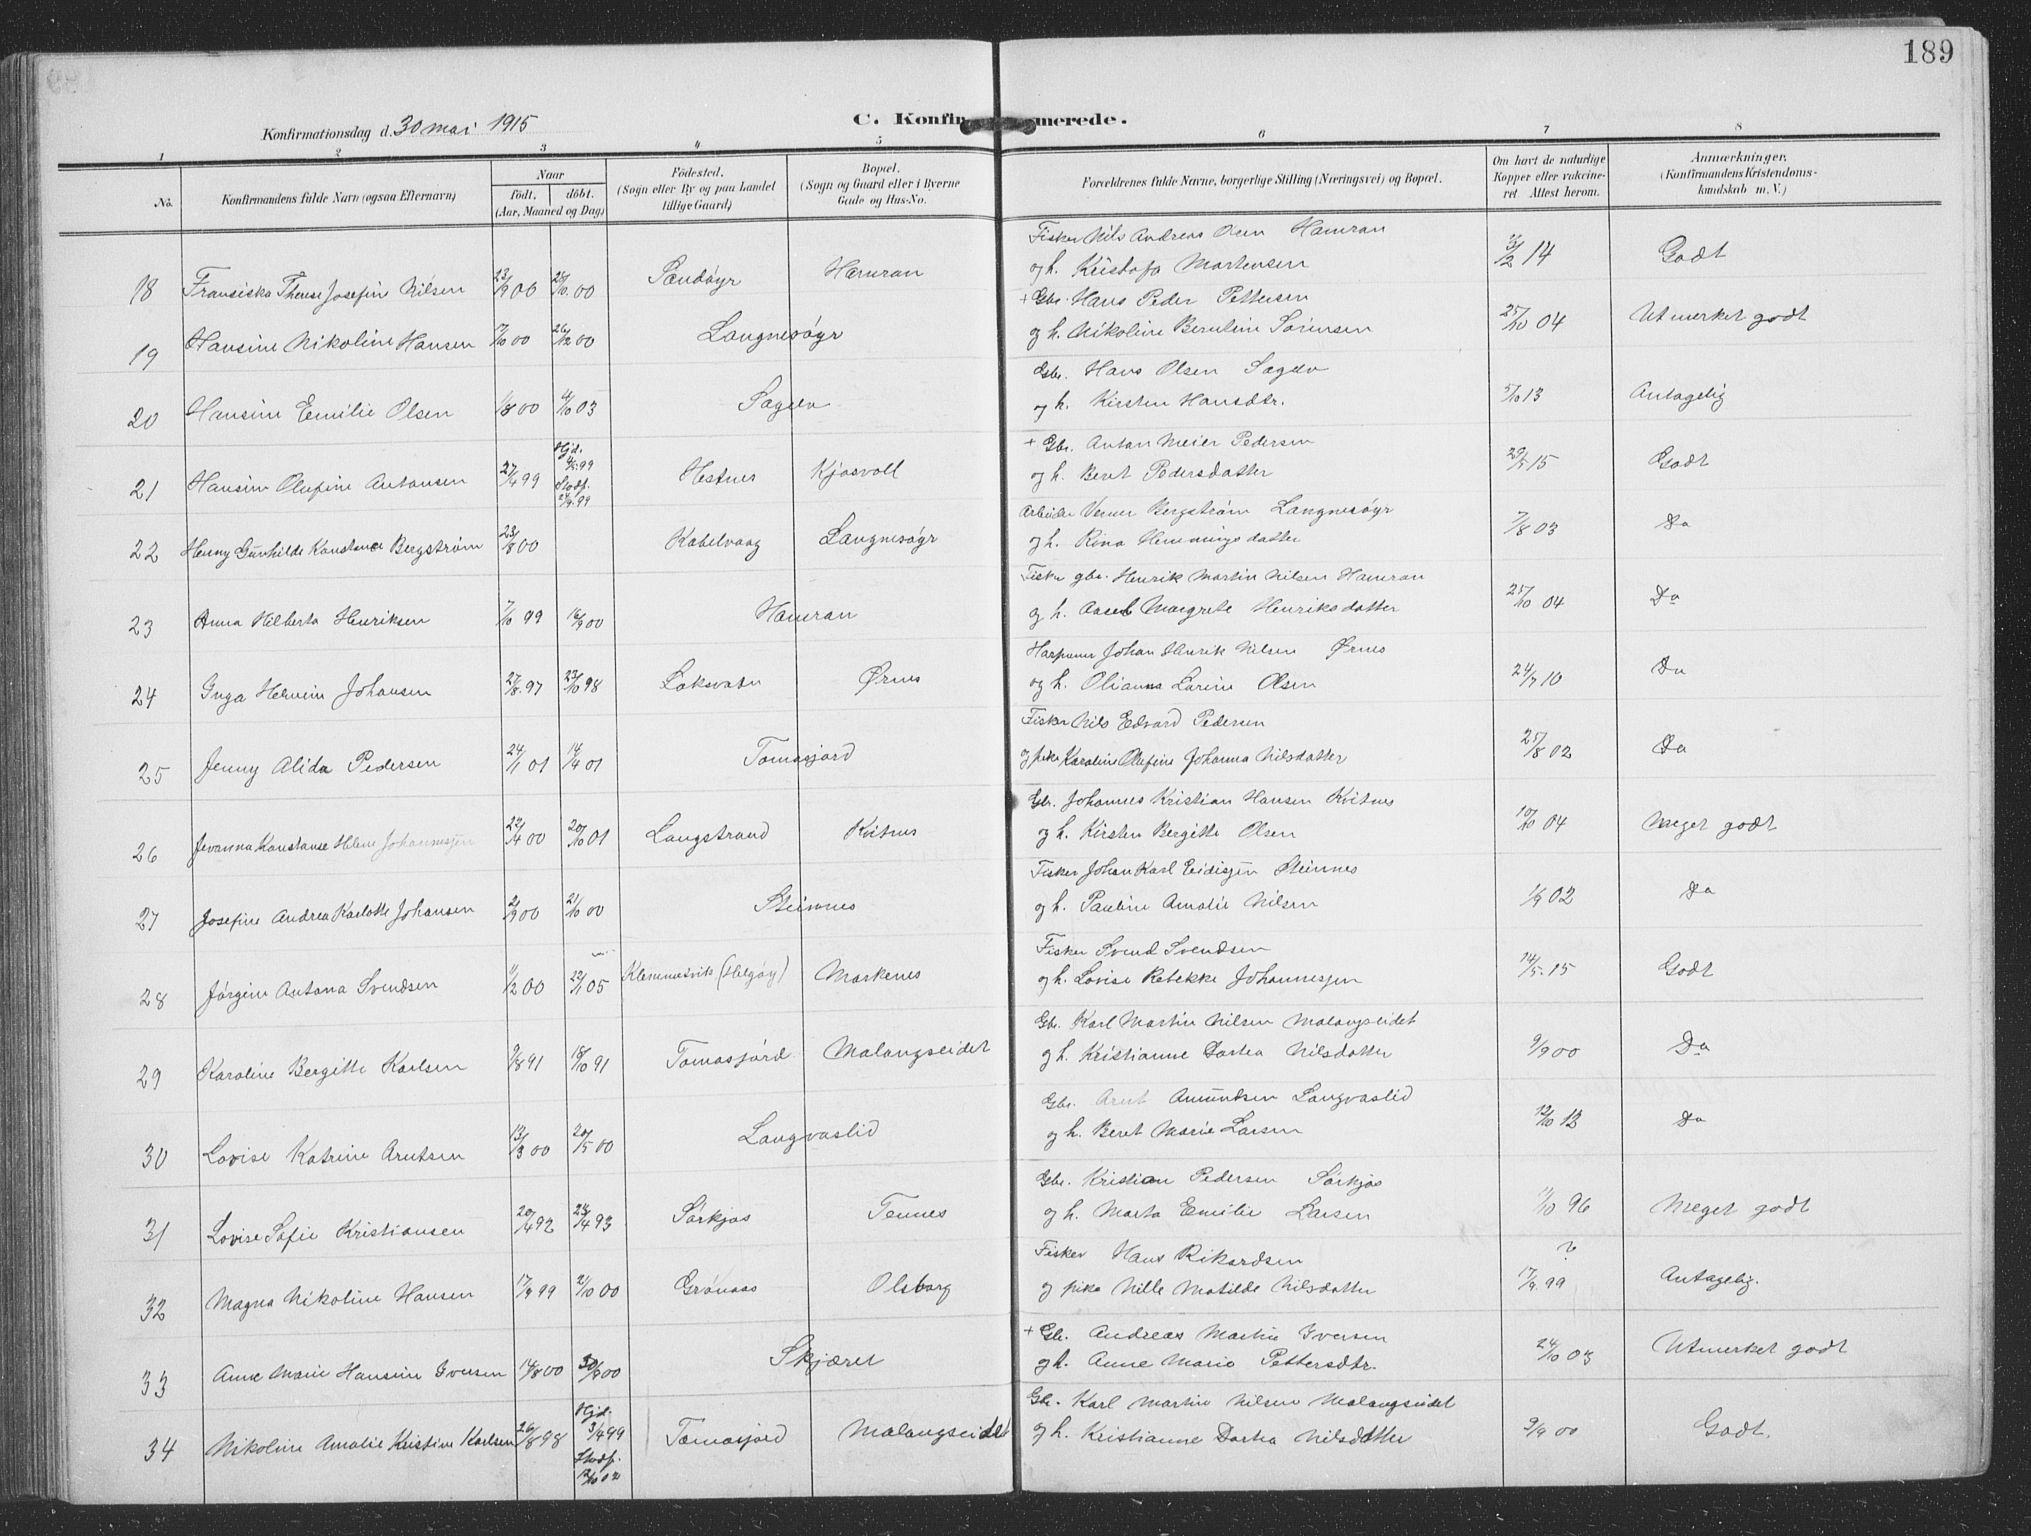 189
Konfirmationsdag d. 30 mai 1915
C. Konfirmerede.
1 2 3 4 5 6 7 8
No.
Konfirmandens fulde Navn (ogsaa Efternavn)
Naar
født. døbt.
(Aar, Maaned og Dag)
Fødested.
(Sogn eller By og paa Landet
tillige Gaard)
Bopæl.
(Sogn og Gaard eller i Byerne
Gade og Hus-No.
Forældrenes fulde Navne, borgerlige Stilling (Næringsvei) og Bopæl.
Om havt de naturlige
Kopper eller vakcine-
ret Attest herom.
Anmærkninger.
(Konfirmandens Kristendoms-
kundskab m. V.)
Fisker Nils Andreas Olsen Hamran
18 Fransiska Therese Josefin Nilsen 23/9 00 28/10 00 Sandøyr Hamran og h. Kristofa Mortensen 3/2 14 Godt
+ Gbr. Hans Peder Pettersen
19 Hansine Nikoline Hansen 7/10 00 26/12 00 Langnesøyr og h. Nikoline Beruline Sørensen 25/10 04 Utmerket godt
Gbr. Hans Olsen Sagelv
20 Hansine Emilie Olsen 1/8 00 4/10 03 Sagelv og h. Kirsten Hansdtr. 5/10 13 Antagelig
+ Gbr. Anton Meier Pedersen
21 Hansine Olufine Antonsen 27/4 99 Hjd. 4/5 99 Stadf. 24/9 99 Hestnes Kjosvoll og h. Beret Pedersdatter 29/5 15 Godt
Arbeider Verner Bergstrøm Langnesøyr
22 Henny Gunhilde Konstance Bergstrøm 23/8 00 Kabelvaag Langnesøyr og h. Rina Hemmingsdatter 7/8 03 Do
Fisker gbr. Henrik Martin Nilsen Hamran
23 Anna Hilberta Henriksen 7/10 99 16/9 00 Hamran og h. Aasel Margrete Henriksdatter 25/10 04 Do
Harpuner Johan Henrik Nilsen Ørnes
24 Inga Helvine Johansen 27/8 97 23/10 98 Laksvatn Ørnes og h. Olianna Larine Olsen 24/7 10 Do
Fisker Nils Edvard Pedersen
25 Jenny Alida Pedersen 24/1 01 14/4 01 Tomasjord og pike Karoline Olufine Johanna Nilsdatter 25/8 02 Do
Gbr. Johannes Kristian Hansen Kvitnes
26 Jevanna Konstanse Helene Johannesjen 22/4 00 20/10 01 Langstrand Kvitnes og h. Kirsten Bergitte Olsen 10/10 04 Meget godt
Fisker Johan Karl Eidisjen Steinnes
27 Josefine Andrea Karlotte Johansen 2/9 00 21/10 00 Steinnes og h. Pauline Amalie Nilsen 1/9 02 Do
Fisker Svend Svendsen
28 Jørgine Antona Svendsen 11/12 00 22/1 05 Klemmesvik (Helgøy) Markenes og h. Lovise Rebekke Johannesjen 14/5 15 Godt
Gbr. Karl Martin Nilsen Malangseidet
29 Karoline Bergitte Karlsen 9/8 91 18/10 91 Tomasjord Malangseidet og h. Kristianne Dortea Nilsdatter 9/9 00 Do
Gbr. Arnt Amundsen Langvaslid
30 Lovise Katrine Arntsen 13/3 00 20/5 00 Langvaslid og h. Beret Marie Larsen 12/10 12 Do
Gbr. Kristian Pedersen Sørkjos
31 Lovise Sofie Kristiansen 20/4 92 23/4 93 Sørkjos Tennes og h. Marta Emilie Larsen 11/10 96 Meget godt
Fisker Hans Rikardsen ?
32 Magna Nikoline Hansen 17/9 99 21/10 00 Grønaas Olsborg og pike Nille Matilde Nilsdatter 17/9 99 Antagelig.
+ Gbr. Andreas Martin Iversen
33 Anne Marie Hansine Iversen 14/8 00 30/9 00 Skjæret og h. Anne Marie Pettersdtr. 24/10 03 Utmerket godt
Gbr. Karl Martin Nilsen Malangseidet
34 Nikoline Amalie Kristine Karlsen 26/8 98 Hjd. 3/4 99 Stadf. 12/10 02 Tomasjord Malangseidet og h. Kristianne Dortea Nilsdatter 9/9 00 Godt.